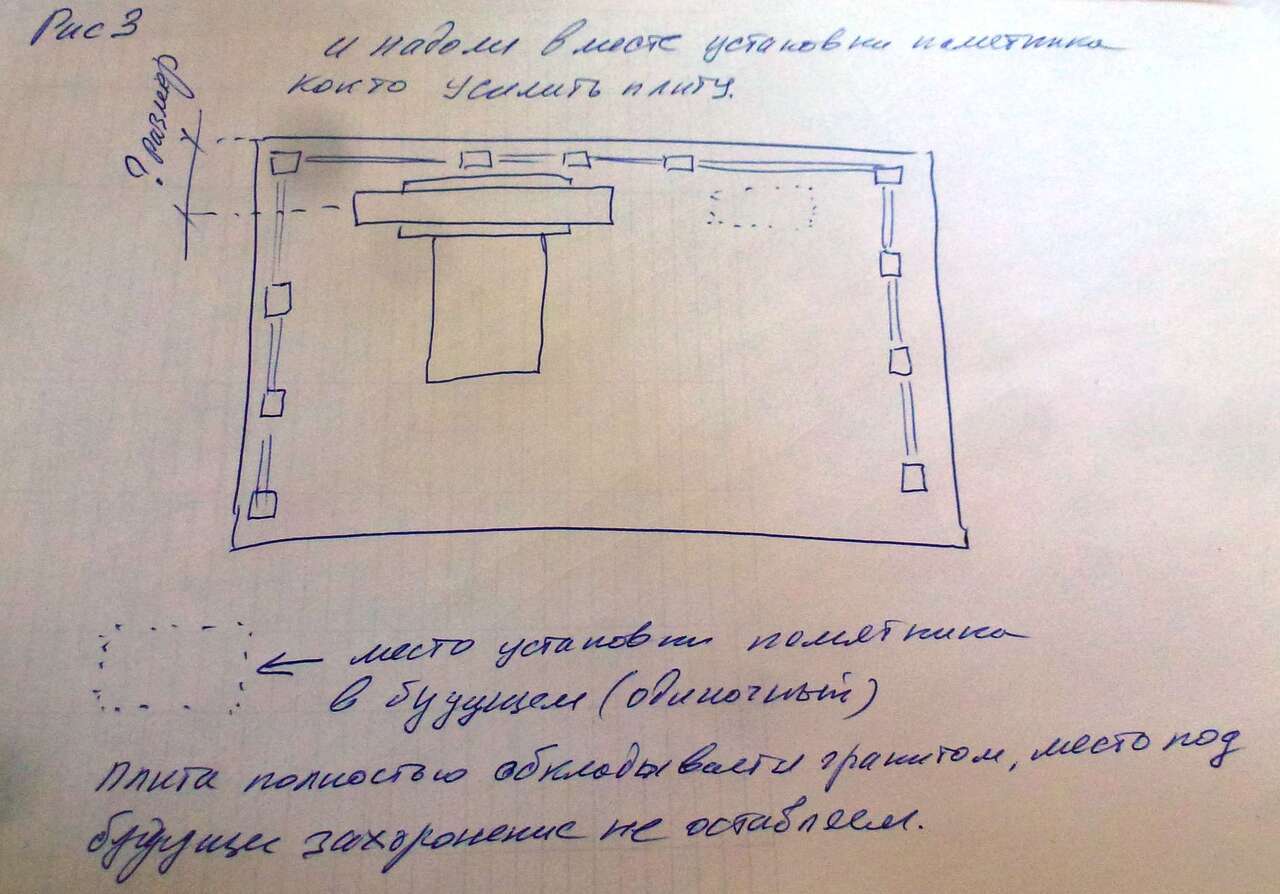 Рис 3
и надоли в месте установки пометника
кокто усилить плиту.
? размер
место установки помятника
в будущем (одиночный)
Плита полностью обкладывается гранитом, место под
будущие захоронение не оставляем.